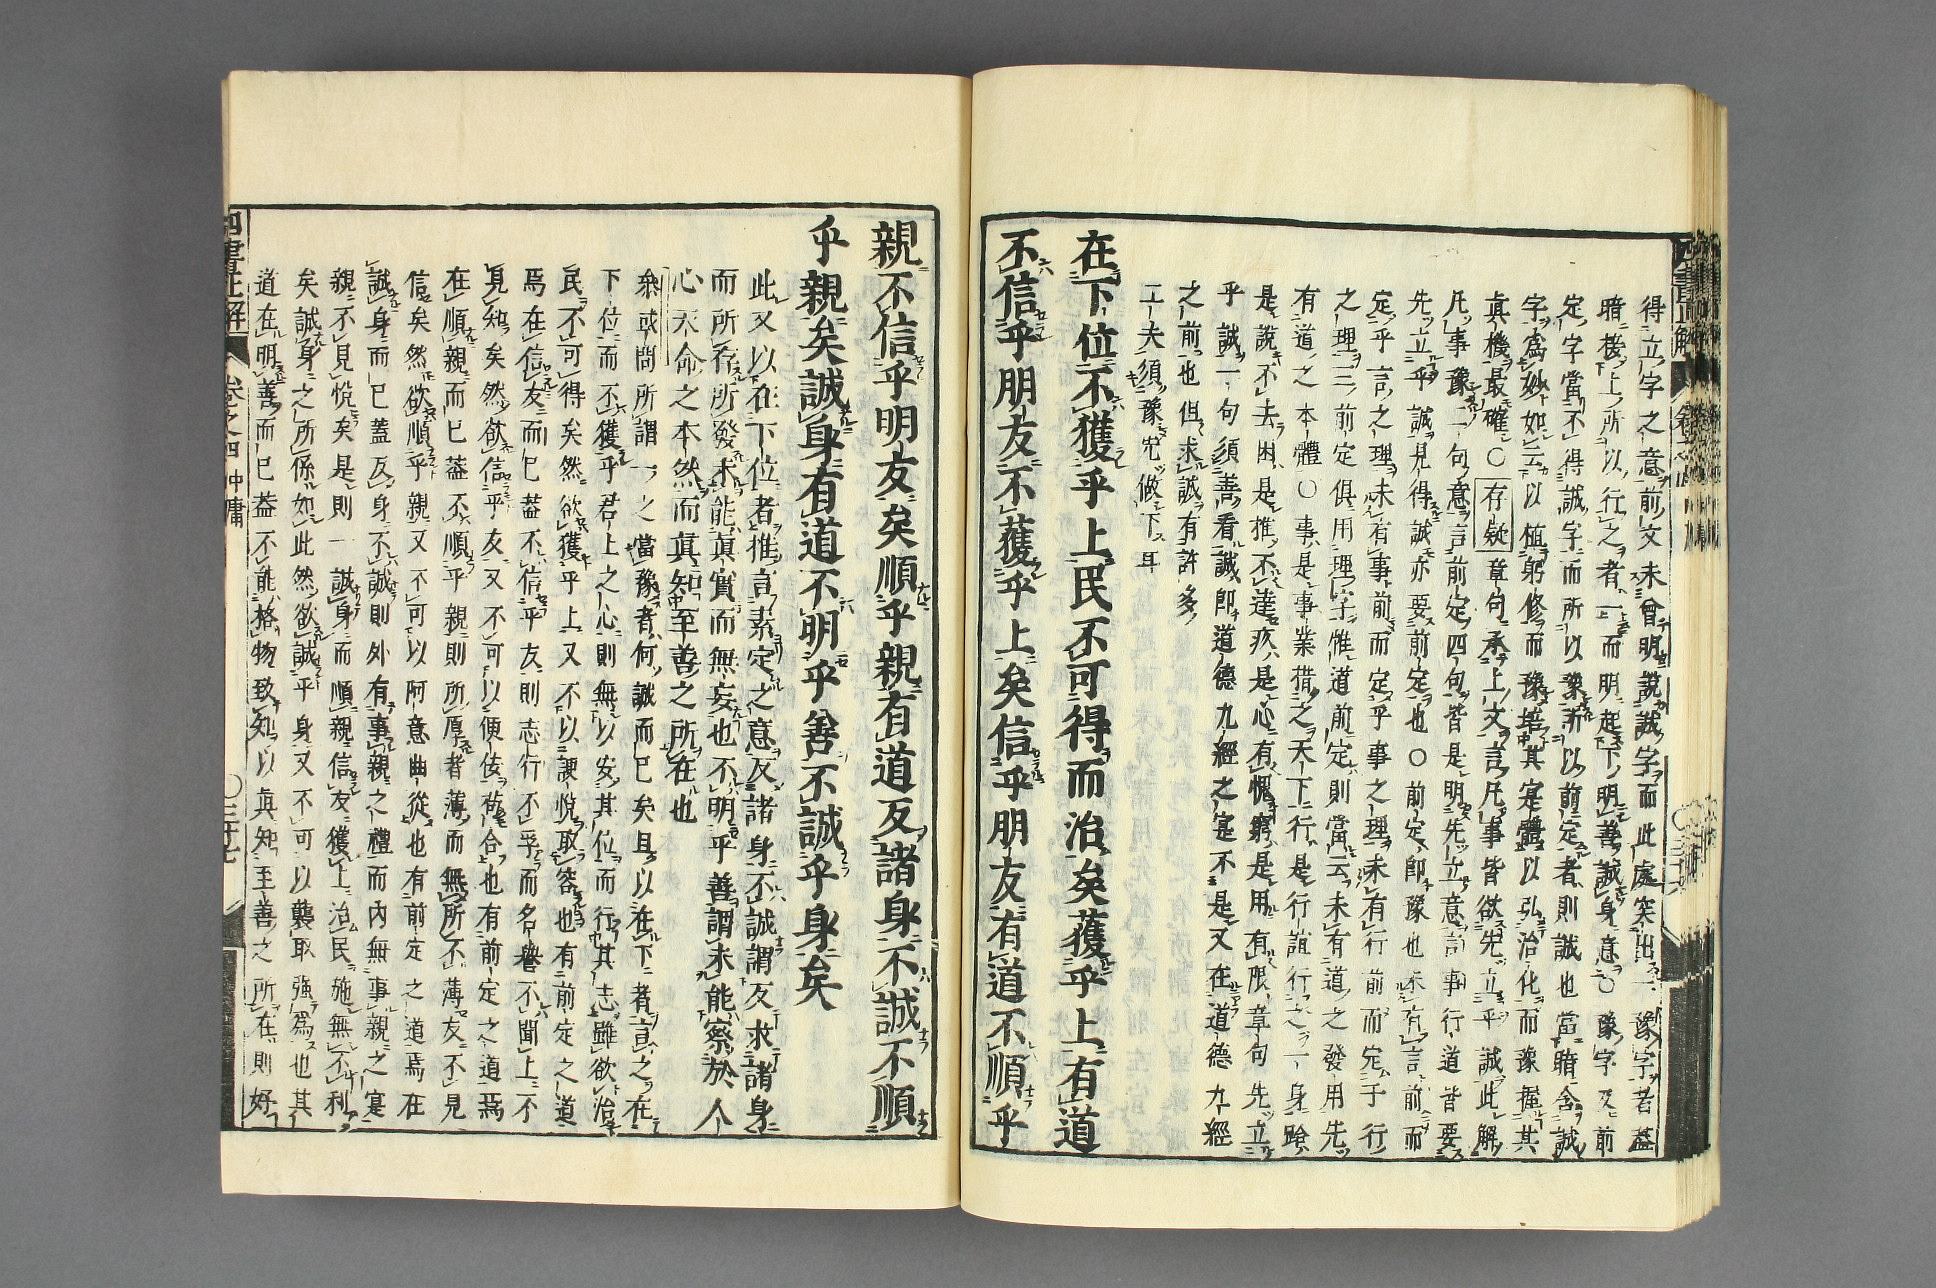 得立字之意前文未曾明說誠字而此處突出一豫字者蓋
暗接上所以行之者一而明起下明善誠身意○豫字及前
定字當不得誠字而所以豫所以前定者則誠也當暗含誠
字爲妙如云以植躬修而豫培其定體以弘治化而豫握其
眞機最確○存疑章句承上文言凡事皆欲先立乎誠此解
凡事豫一句意言前定四句皆是明先立意言事行道皆要
先立乎誠見得誠亦要前定也○前定卽豫也未有言前而
定乎言之理未有事前而定乎事之理未有行前而定于行
之理三前定俱用理字惟道前定則當云未有道之發用先
有道之本體○事是事業措之天下行是行誼行之一身跲
是說不去困是推不達疚是心有愧窮是用有限章句先立
乎誠一句須善看誠卽道德九經之定不是又在道德九經
之前也但求誠有許多
工夫須豫先做下耳
在下位不獲乎上民不可得而治矣獲乎上有道
不信乎朋友不獲乎上矣信乎朋友有道不順乎
親不信乎朋友矣順乎親有道反諸身不誠不順
乎親矣誠身有道不明乎善不誠乎身矣
此又以在下位者推言素定之意反諸身不誠謂反求諸身
而所存所發未能眞實而無妄也不明乎善謂未能察於人
心天命之本然而眞知至善之所在也
叅或問所謂一之當豫者何誠而已矣且以在下者言之在
下位而不獲乎君上之心則無以安其位而行其志雖欲治
民不可得矣然欲獲乎上又不以諛悅取容也有前定之道
焉在信友而已蓋不信乎友則志行不孚而名譽不聞上不
見知矣然欲信乎友又不可以便佞苟合也有前定之道焉
在順親而已蓋不順乎親則所厚者薄而無所不薄友不見
信矣然欲順乎親又不可以阿意曲從也有前定之道焉在
誠身而已蓋反身不誠則外有事親之禮而內無事親之寔
親不見悅矣是則一誠身而順親信友獲上治民施無不利
矣誠身之所係如此然欲誠乎身又不可以襲取強爲也其
道在明善而已蓋不能格物致知以眞知至善之所在則好
四書正解 卷之四 中庸 ○三十七